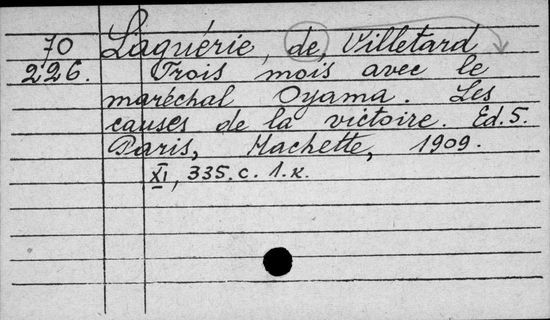 70 Laguérie, de, Villetard
226. Trois mois avec le
maréchal Oyama. Les
causes de la victoire. Ed. 5.
Paris, Hachette, 1909.
XI, 335.c. 1.к.